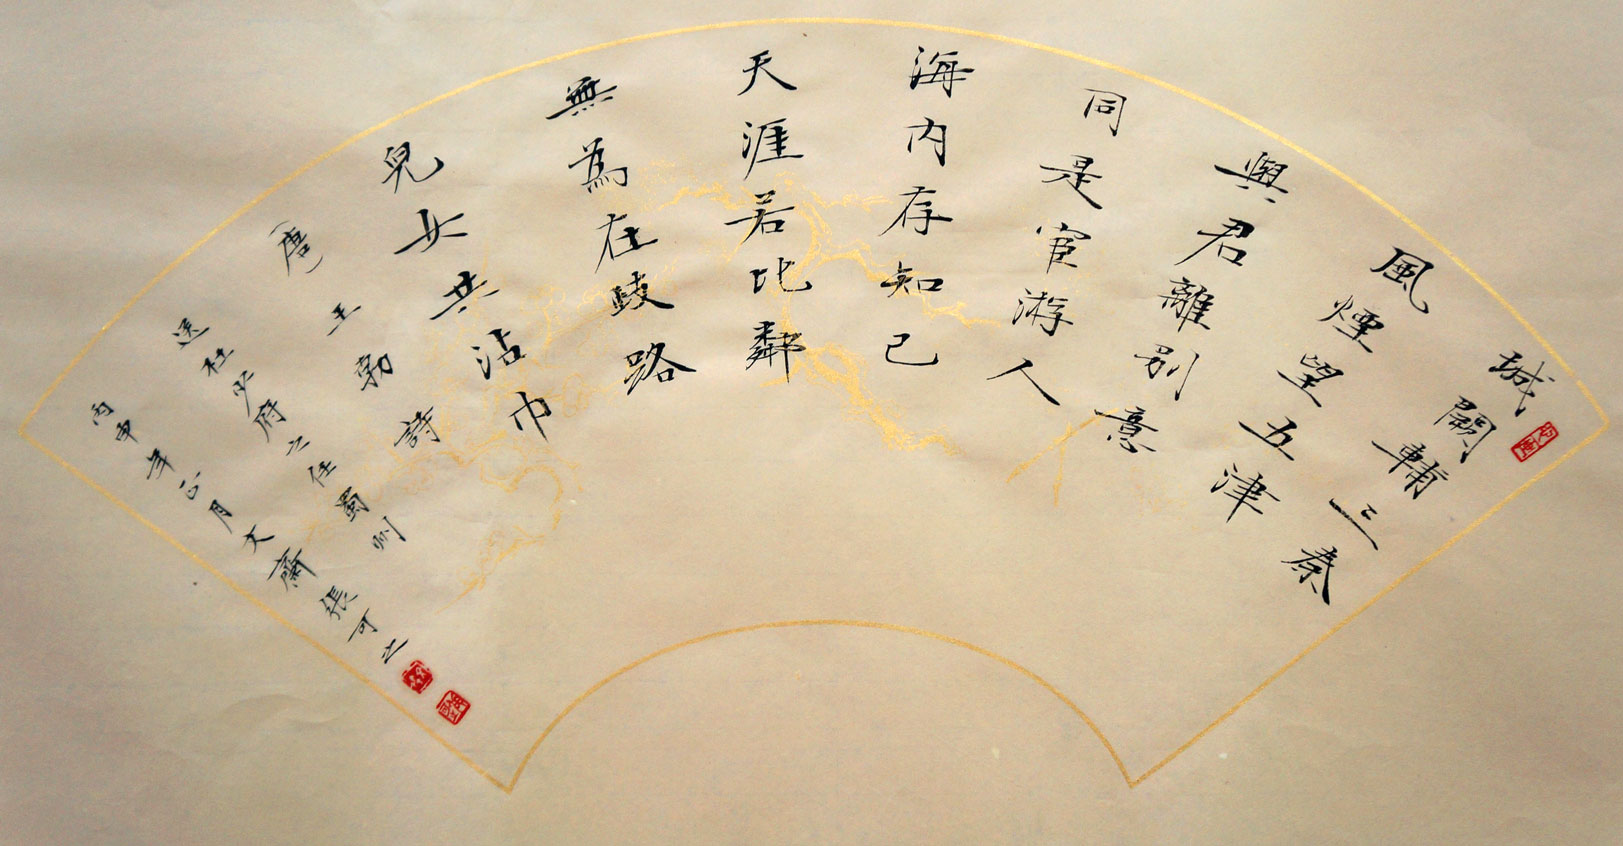 城闕輔三秦
風煙望五津
與君離別意
同是宦游人
海内存知己
天涯若比鄰
無為在歧路
兒女共沾巾
(唐)王勃詩
送杜少府之任蜀州
丙申年六月文齋張可之